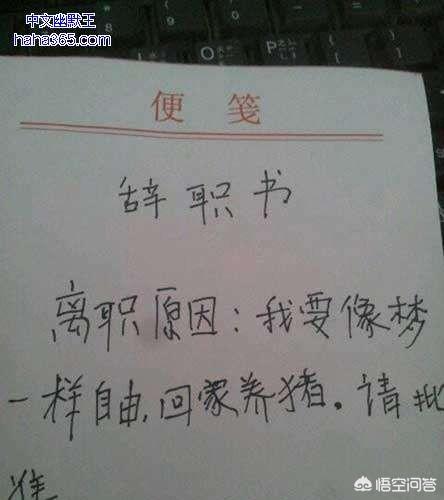 中文幽默王
haha365.com
便笺
辞职书
离职原因：我要像梦
一样自由，回家养猪。请批
准
悟空问答